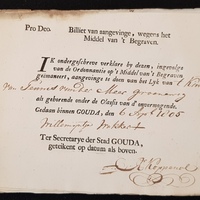 Pro Deo. Billiet van aangevinge, wegens het
Middel van 't Begraven.
IK ondergeschreve verklare by dezen, ingevolge
van de Ordonnantie op 't Middel van 't Begraven
geëmaneert, aangevinge te doen van het Lyk van 't Kind
van Teunis van der Meer
als gehorende onder de Classis van d'onvermogende.
Gedaan binnen GOUDA, den 6 1805
Ter Secretarye der Stad GOUDA,
geteikent op datum als boven.